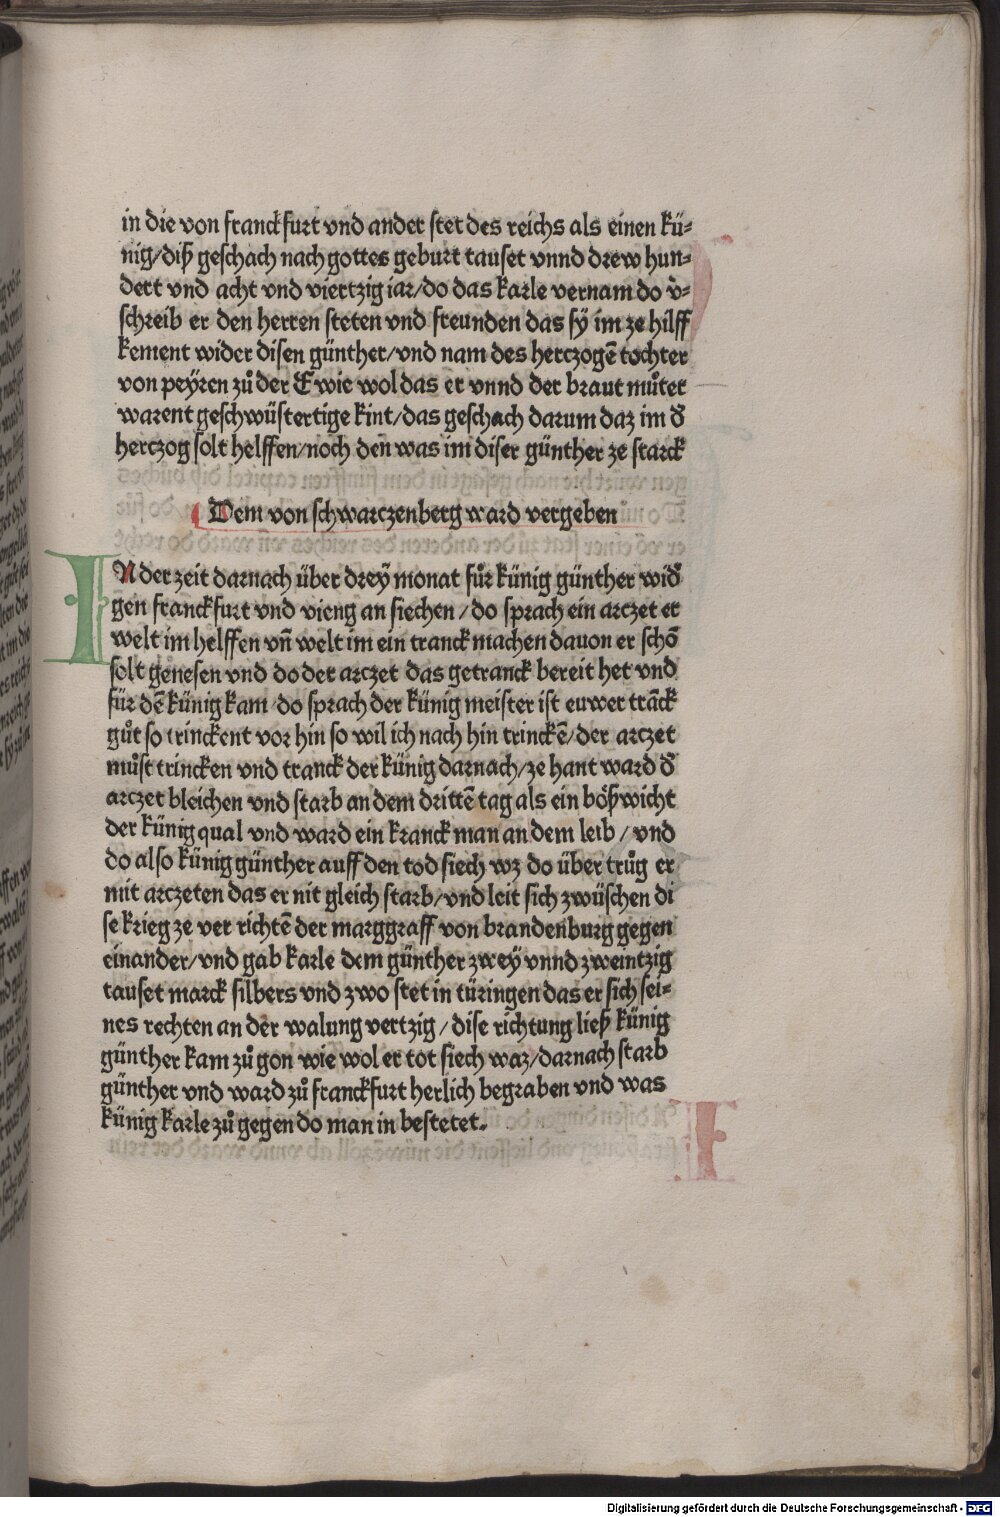 in die von franckfurt vnd ander stet des reichs als einen kü-
nig/diß geschach nach gottes geburt tauset vnnd drew hun-
dert vnd acht vnd viertzig iar/do das karle vernam do v̄-
schreib er den herren steten vnd freunden das sÿ im ze hilff
kement wider disen günther/vnd nam des herczogē tochter
von peÿren zů der E wie wol das er vnnd der braut můter
warent geschwüstertige kint/das geschach darum daz im d̄
herczog solt helffen/noch den was im diser günther ze starck
Dem von schwarczenberg ward vergeben
IN der zeit darnach über dreÿ monat fůr künig günther wid̄
gen franckfurt vnd vieng an siechen/do sprach ein arczet er
welt im helffen vn̄ welt im ein tranck machen dauon er schō
solt genesen vnd do der arczet das getranck bereit het vnd
für dē künig kam do sprach der künig meister ist euwer trāck
gůt so trinckent vor hin so wil ich nach hin trinckē/der arczet
můst trincken vnd tranck der künig darnach/ze hant ward d̄
arczet bleichen vnd starb an dem drittē tag als ein bößwicht
der künig qual vnd ward ein kranck man an dem leib/vnd
do also künig günther auff den tod siech wz do über trůg er
mit arczeten das er nit gleich starb/vnd leit sich zwüschen di
se krieg ze ver richtē der marggraff von brandenburg gegen
einander/vnd gab karle dem günther zweÿ vnnd zweintzig
tauset marck silbers vnd zwo stet in türingen das er sich sei-
nes rechten an der walung vertzig/dise richtung ließ künig
günther kam zů gon wie wol er tot siech waz/darnach starb
günther vnd ward zů franckfurt herlich begraben vnd was
künig karle zů gegen do man in bestetet.
Digitalisierung gefördert durch die Deutsche Forschungsgemeinschaft - DFG